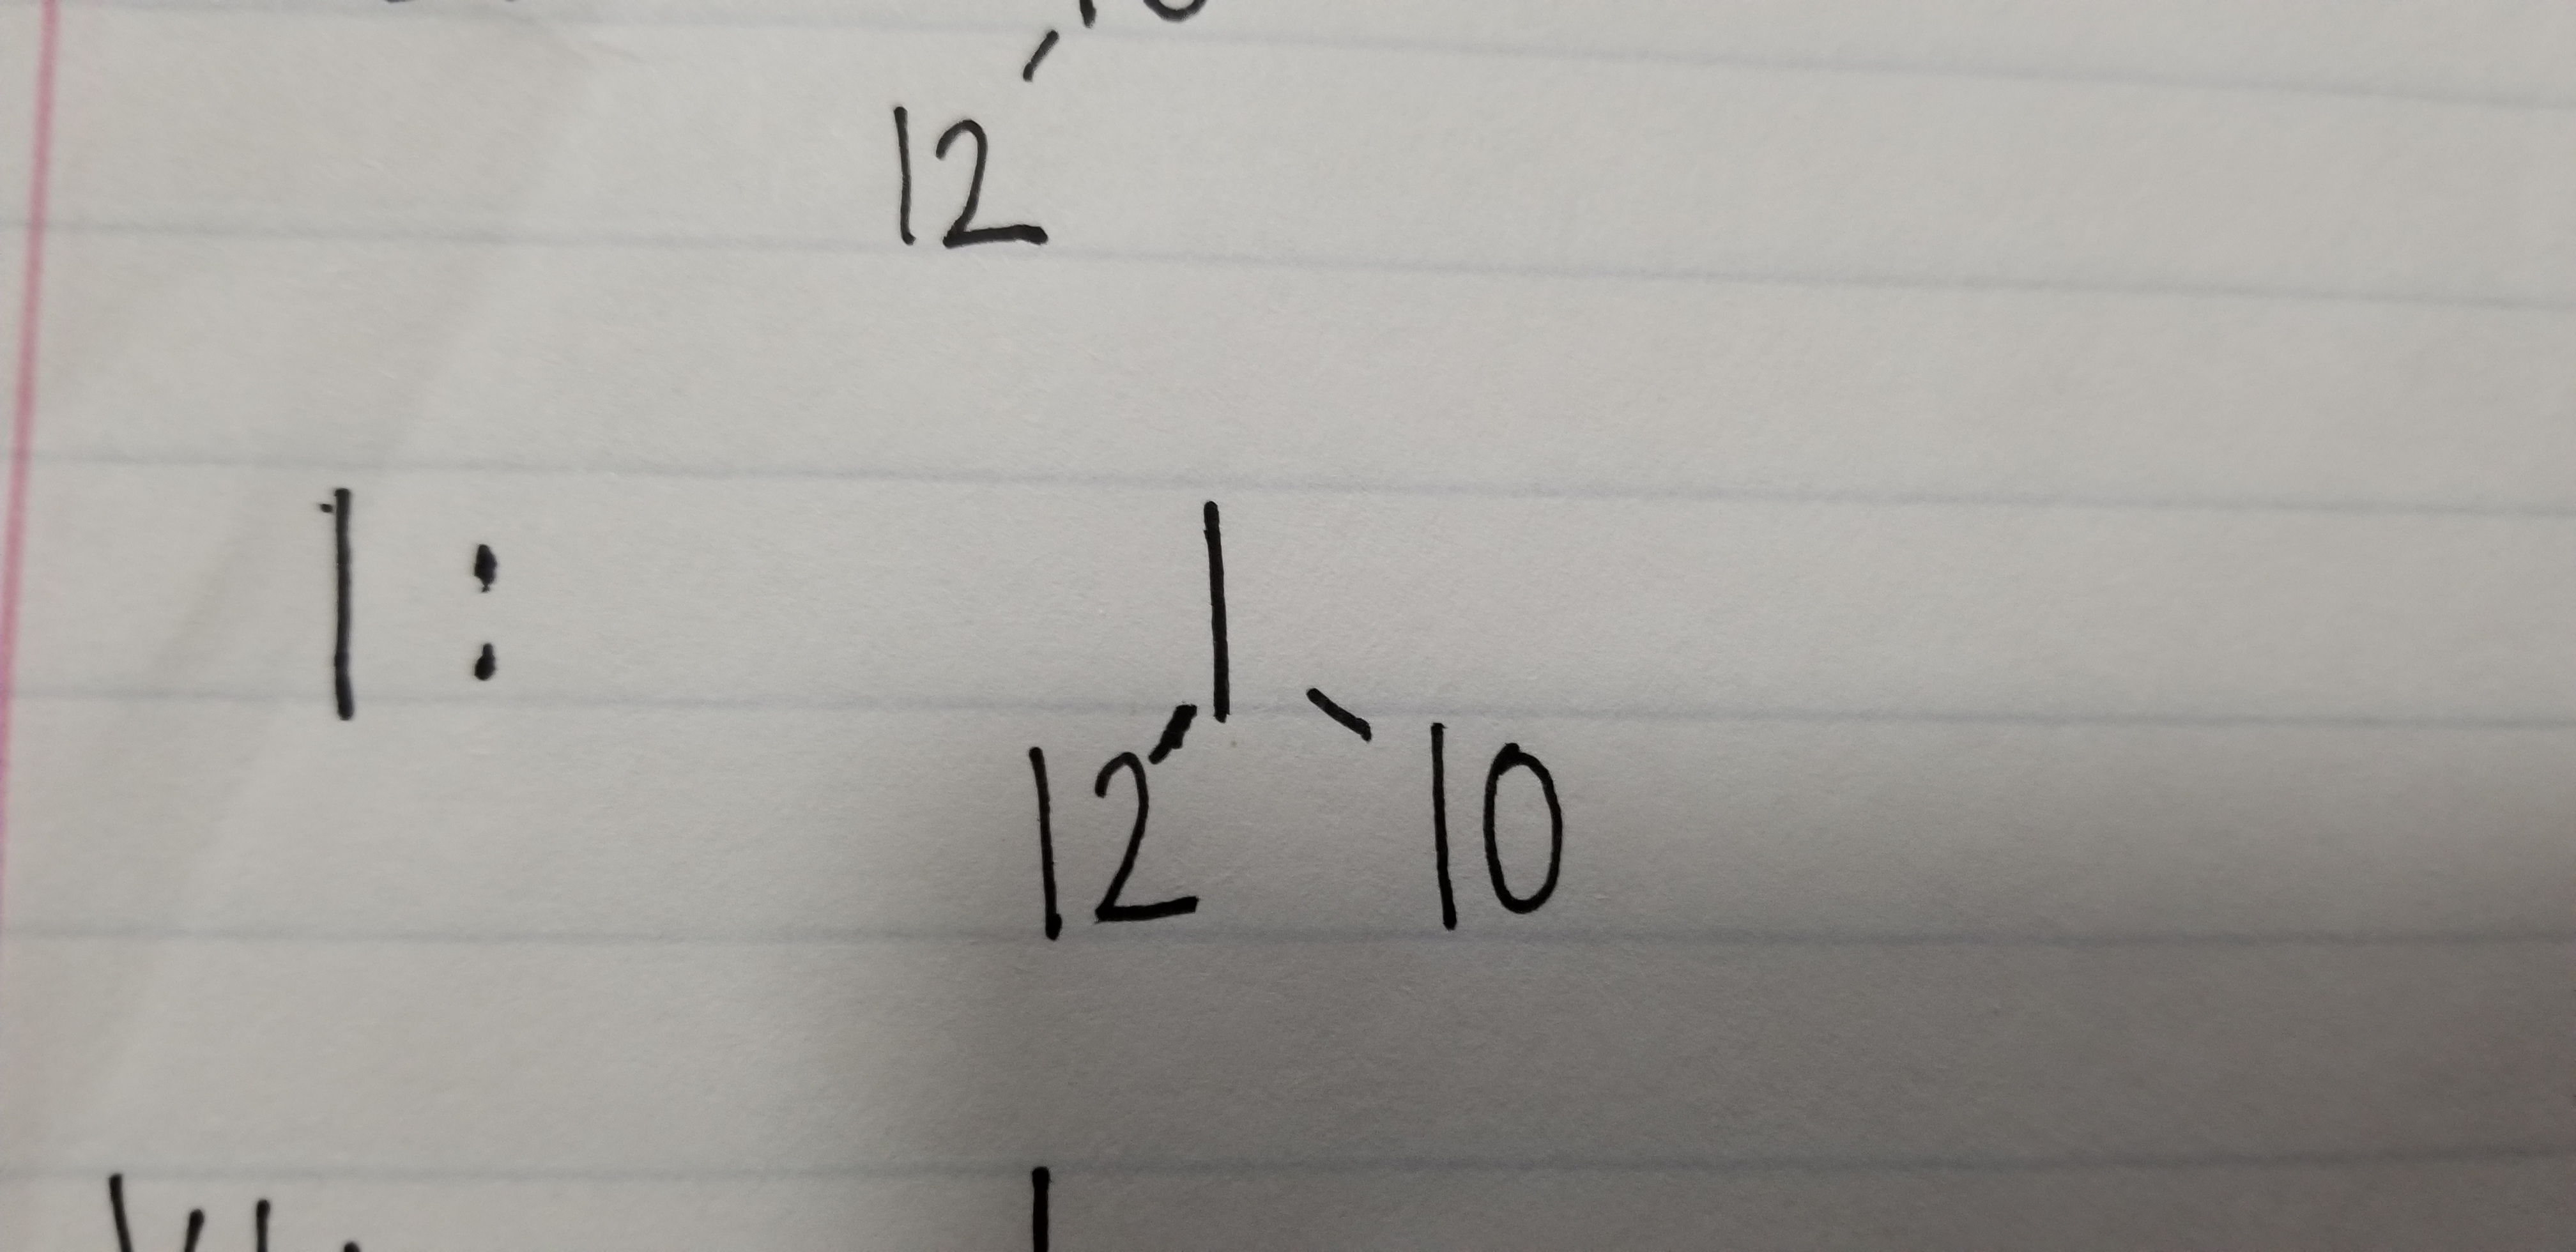 12
1: 1
12 10